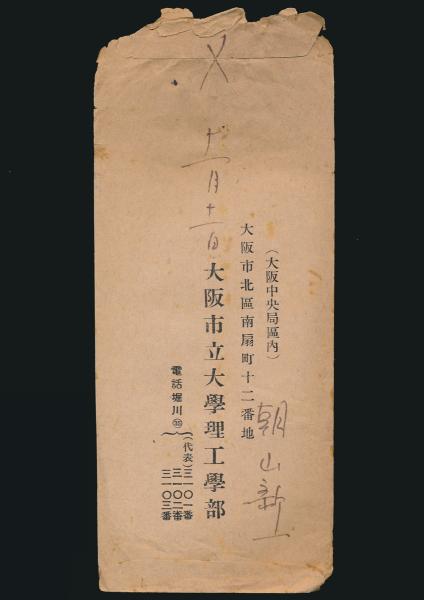 〆
十一月十一日
(大阪中央局區內)
大阪市北區南扇町十二番地
大阪市立大學理工學部
電話堀川㉟
(代表)三一〇一番
三一〇二番
三一〇三番
朝山新一